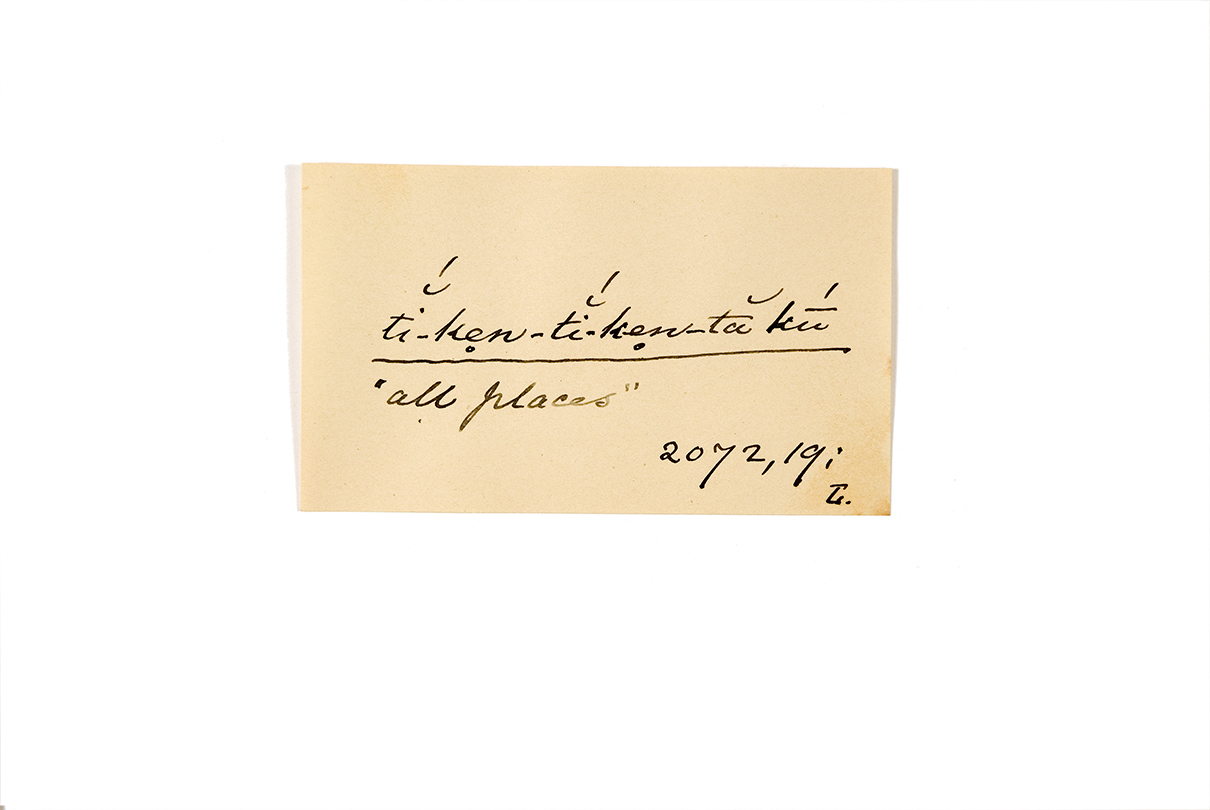 tĭ́-kẹn-tĭ́-kẹn-tă kū́
"all places"
2072, 19;
L.